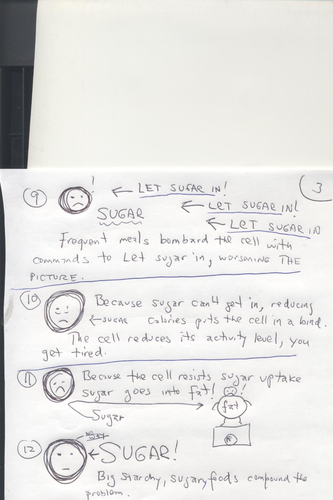 3
9 ! ← LET SUGAR IN!
SUGAR ← LET SUGAR IN!
← LET SUGAR IN
Frequent meals bombard the cell with
commands to Let sugar in, worsening THE
PICTURE.
10 Because sugar can't get in, reducing
← SUGAR Calories puts the cell in a bind.
The cell reduces its activity level, you
get tired.
11 Because the cell resists sugar uptake
sugar goes into fat!
Sugar fat
12 ← SUGAR!
Big starchy, sugary foods compound the
problem.